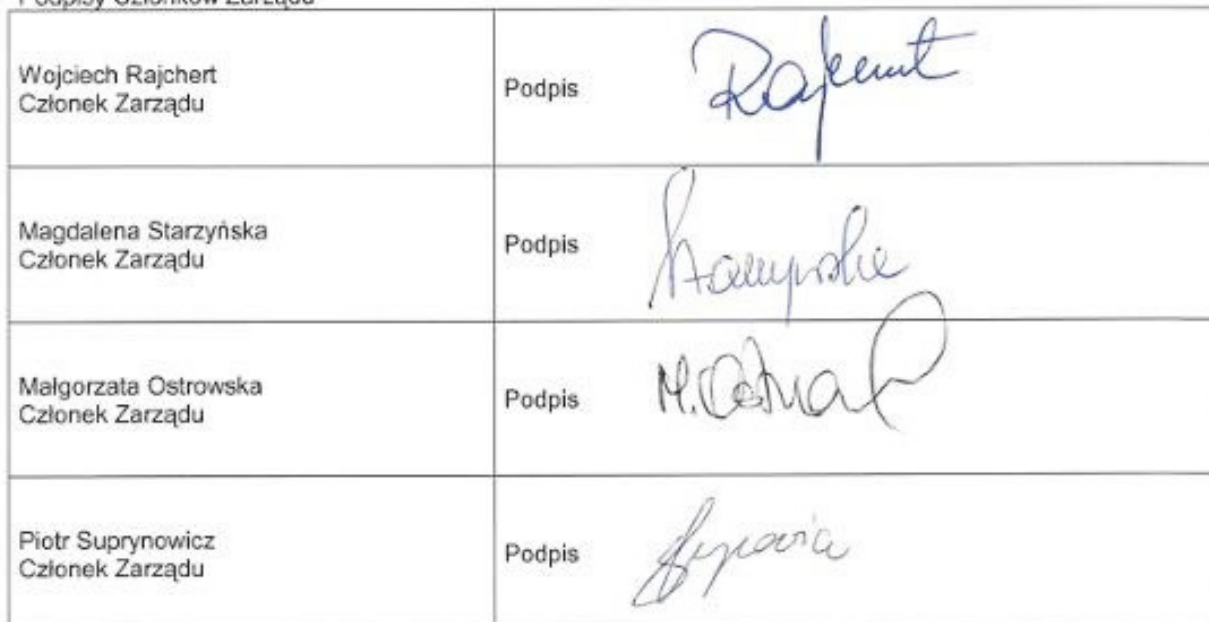 Podpisy Członków Zarządu
Wojciech Rajchert
Członek Zarządu
Podpis
Magdalena Starzyńska
Członek Zarządu
Podpis
Małgorzata Ostrowska
Członek Zarządu
Podpis
Piotr Suprynowicz
Członek Zarządu
Podpis